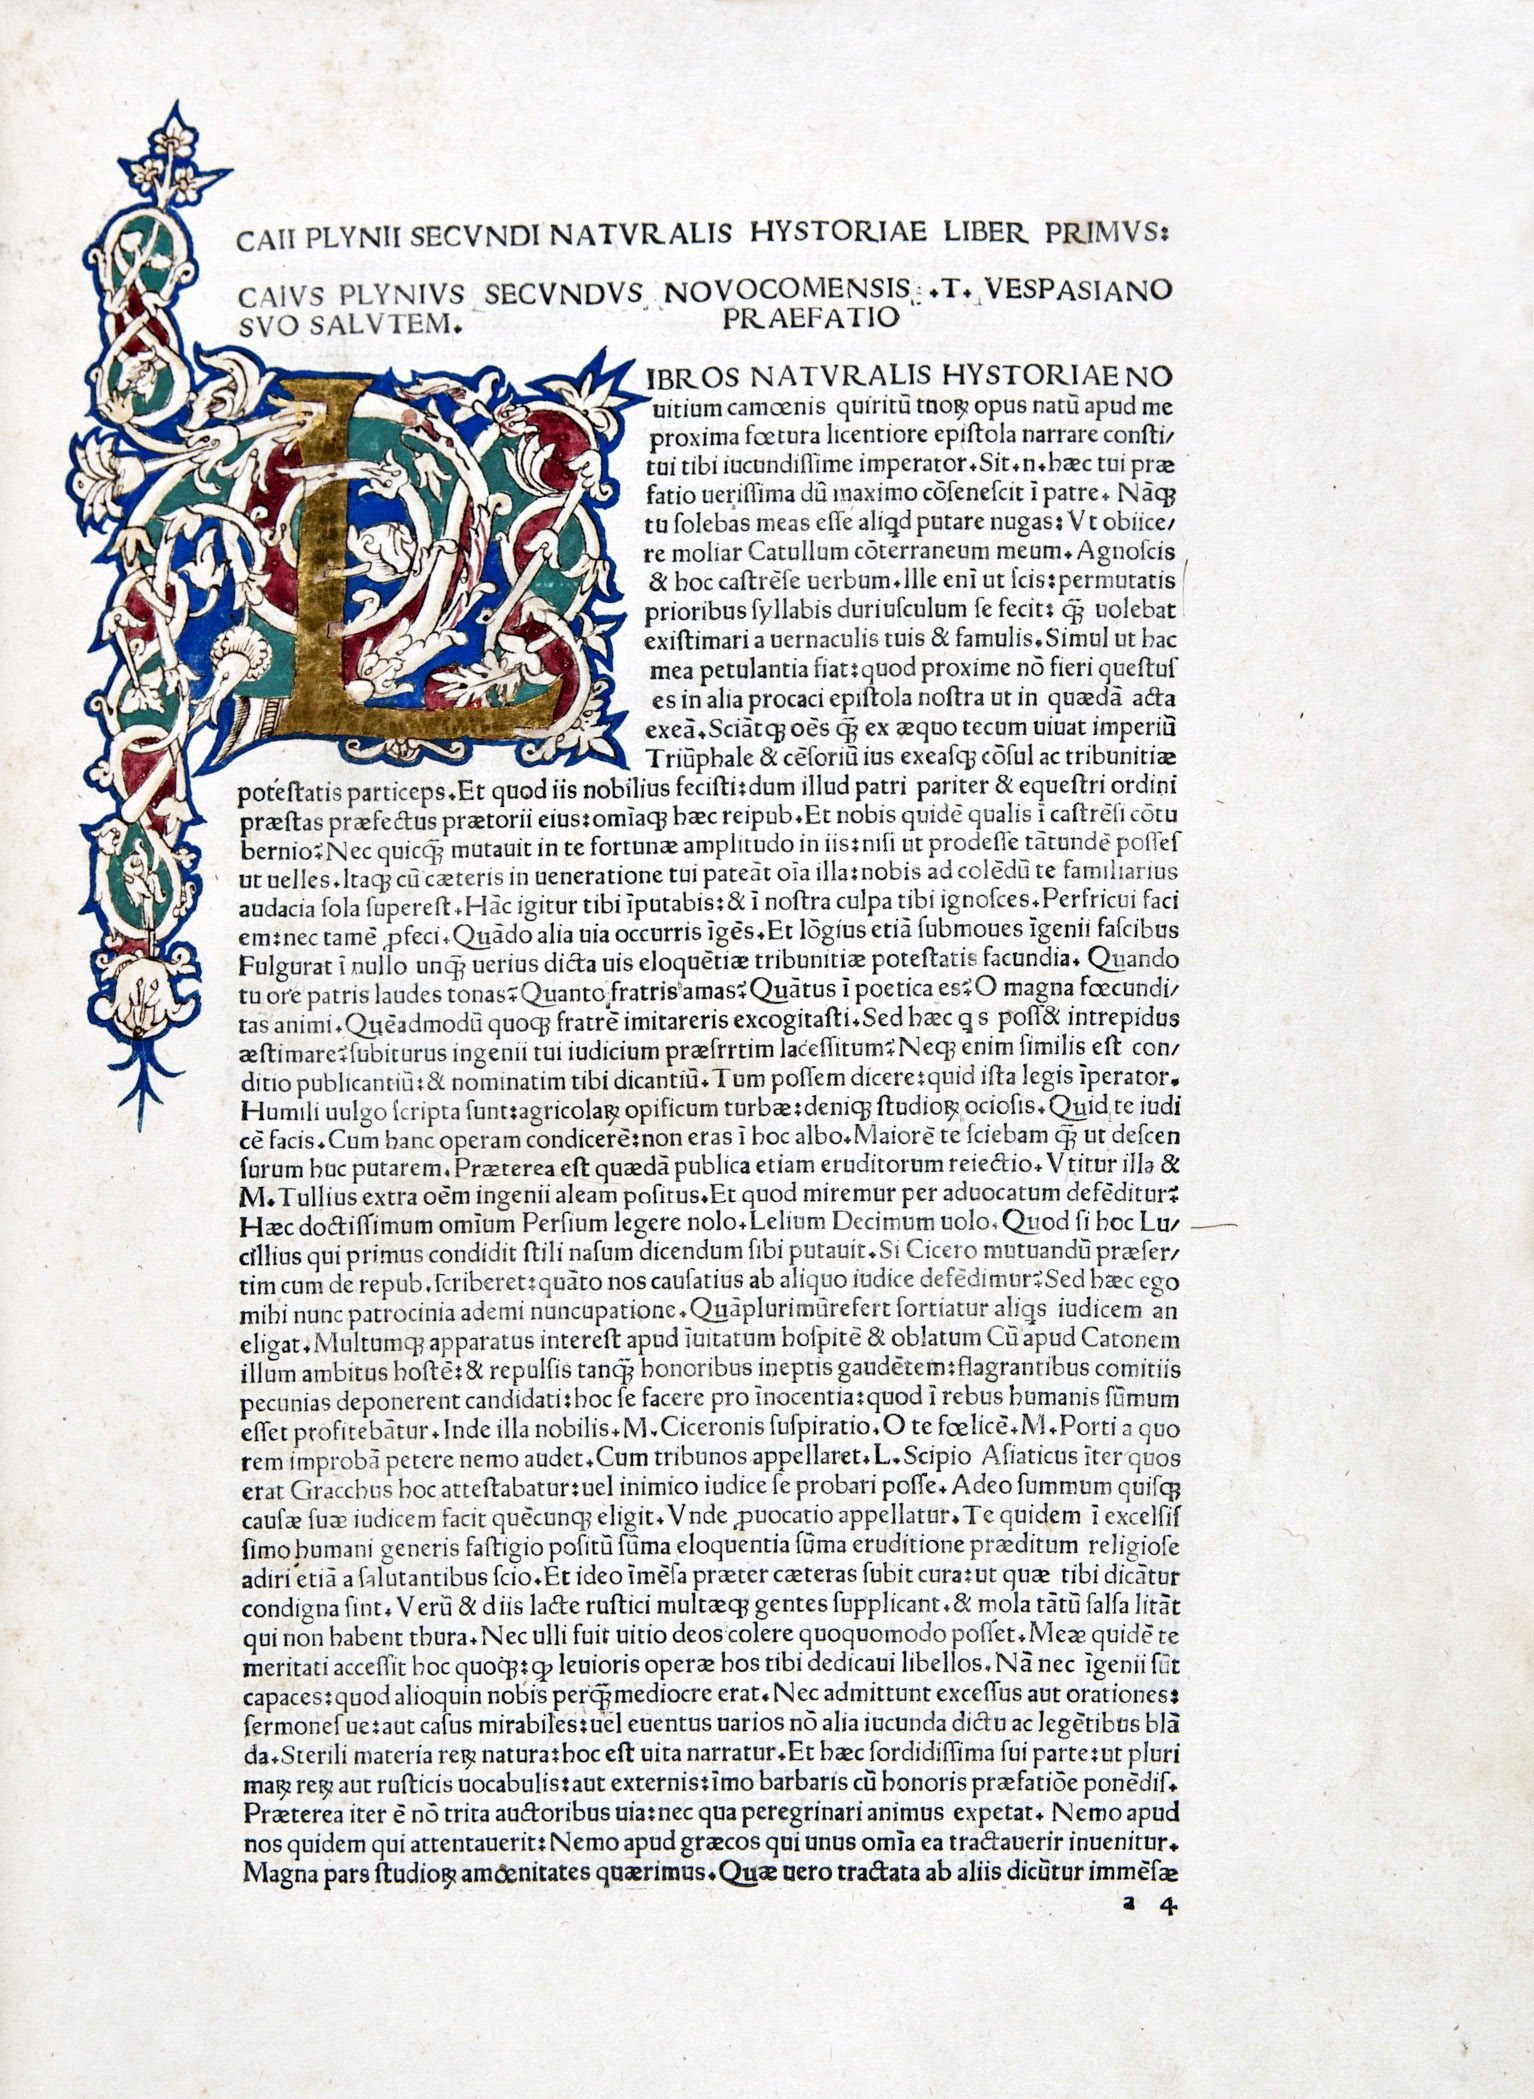 CAII PLYNII SECVNDI NATVRALIS HYSTORIAE LIBER PRIMVS:
CAIVS PLYNIVS SECVNDVS NOVOCOMENSIS: .T. VESPASIANO
SVO SALVTEM. PRAEFATIO
LIBROS NATVRALIS HYSTORIAE NO
uitium camœnis quiritū tuoꝝ opus natū apud me
proxima fœtura licentiore epiſtola narrare conſti/
tui tibi iucundiſſime imperator.Sit.n.hæc tui præ
fatio ueriſſima dū maximo cōſeneſcit ī patre. Nāqꝫ
tu ſolebas meas eſſe aliqd putare nugas: Vt obiice/
re moliar Catullum cōterraneum meum. Agnoſcis
& hoc caſtrēſe uerbum.Ille enī ut ſcis:permutatis
prioribus ſyllabis duriuſculum ſe fecit: q̄ꝫ uolebat
exiſtimari a uernaculis tuis & famulis.Simul ut hac
mea petulantia fiat:quod proxime nō fieri queſtuſ
es in alia procaci epiſtola noſtra ut in quædā acta
exeā.Sciātqꝫ oēs q̄ꝫ ex æquo tecum uiuat imperiū
Triūphale & cēſoriū ius exeaſqꝫ cōſul ac tribunitiæ
poteſtatis particeps.Et quod iis nobilius feciſti:dum illud patri pariter & equeſtri ordini
præſtas præfectus prætorii eius:omīaqꝫ hæc reipub.Et nobis quidē qualis ī caſtrēſi cōtu
bernio?Nec quicq̄ꝫ mutauit in te fortunæ amplitudo in iis:niſi ut prodeſſe tātundē poſſeſ
ut uelles.Itaqꝫ cū cæteris in ueneratione tui pateāt oīa illa:nobis ad colēdū te familiarius
audacia ſola ſupereſt.Hāc igitur tibi īputabis:& ī noſtra culpa tibi ignoſces.Perfricui faci
em:nec tamē ꝓfeci.Quādo alia uia occurris īgēs.Et lōgius etiā ſubmoues īgenii faſcibus
Fulgurat ī nullo unq̄ꝫ uerius dicta uis eloquētiæ tribunitiæ poteſtatis facundia. Quando
tu ore patris laudes tonas?Quanto fratris amas?Quātus ī poetica es?O magna fœcundi/
tas animi.Quēadmodū quoqꝫ fratrē imitareris excogitaſti.Sed hæc q s poſſ& intrepidus
æſtimare?ſubiturus ingenii tui iudicium præſrrtim laceſſitum?Neqꝫ enim ſimilis eſt con/
ditio publicantiū:& nominatim tibi dicantiū.Tum poſſem dicere:quid iſta legis īperator.
Humili uulgo ſcripta ſunt:agricolaꝝ opificum turbæ:deniqꝫ ſtudioꝝ ocioſis.Quid te iudi
cē facis.Cum hanc operam condicerē:non eras ī hoc albo.Maiorē te ſciebam q̄ꝫ ut deſcen
ſurum huc putarem.Præterea eſt quædā publica etiam eruditorum reiectio.Vtitur illa &
M.Tullius extra oēm ingenii aleam poſitus.Et quod miremur per aduocatum defēditur?
Hæc doctiſſimum omīum Perſium legere nolo.Lelium Decimum uolo.Quod ſi hoc Lu/
cillius qui primus condidit ſtili naſum dicendum ſibi putauit.Si Cicero mutuandū præſer/
tim cum de repub.ſcriberet:quāto nos cauſatius ab aliquo iudice defēdimur?Sed hæc ego
mihi nunc patrocinia ademi nuncupatione.Quāplurimūrefert ſortiatur aliqs iudicem an
eligat.Multumqꝫ apparatus intereſt apud īuitatum hoſpitē & oblatum Cū apud Catonem
illum ambitus hoſtē:& repulſis tanq̄ꝫ honoribus ineptis gaudētem:flagrantibus comitiis
pecunias deponerent candidati:hoc ſe facere pro īnocentia:quod ī rebus humanis ſūmum
eſſet profitebātur.Inde illa nobilis.M.Ciceronis ſuſpiratio.O te fœlicē.M.Porti a quo
rem improbā petere nemo audet.Cum tribunos appellaret.L.Scipio Aſiaticus īter quos
erat Gracchus hoc atteſtabatur:uel inimico iudice ſe probari poſſe.Adeo ſummum quiſqꝫ
cauſæ ſuæ iudicem facit quēcunqꝫ eligit.Vnde ꝓuocatio appellatur.Te quidem ī excelſiſ
ſimo humani generis faſtigio poſitū ſūma eloquentia ſūma eruditione præditum religioſe
adiri etiā a ſalutantibus ſcio.Et ideo īmēſa præter cæteras ſubit cura:ut quæ tibi dicātur
condigna ſint.Verū & diis lacte ruſtici multæqꝫ gentes ſupplicant.& mola tātū ſalſa litāt
qui non habent thura.Nec ulli fuit uitio deos colere quoquomodo poſſet.Meæ quidē te
meritati acceſſit hoc quoqꝫ:ꝙ leuioris operæ hos tibi dedicaui libellos.Nā nec īgenii ſūt
capaces:quod alioquin nobis perq̄ꝫ mediocre erat.Nec admittunt exceſſus aut orationes:
ſermoneſ ue:aut caſus mirabiles:uel euentus uarios nō alia iucunda dictu ac legētibus blā
da.Sterili materia reꝝ natura:hoc eſt uita narratur.Et hæc ſordidiſſima ſui parte:ut pluri
maꝝ reꝝ aut ruſticis uocabulis:aut externis:īmo barbaris cū honoris præfatiōe ponēdiſ.
Præterea iter ē nō trita auctoribus uia:nec qua peregrinari animus expetat. Nemo apud
nos quidem qui attentauerit:Nemo apud græcos qui unus omīa ea tractauerir inuenitur.
Magna pars ſtudioꝝ amœnitates quærimus.Quæ uero tractata ab aliis dicūtur immēſæ
a 4